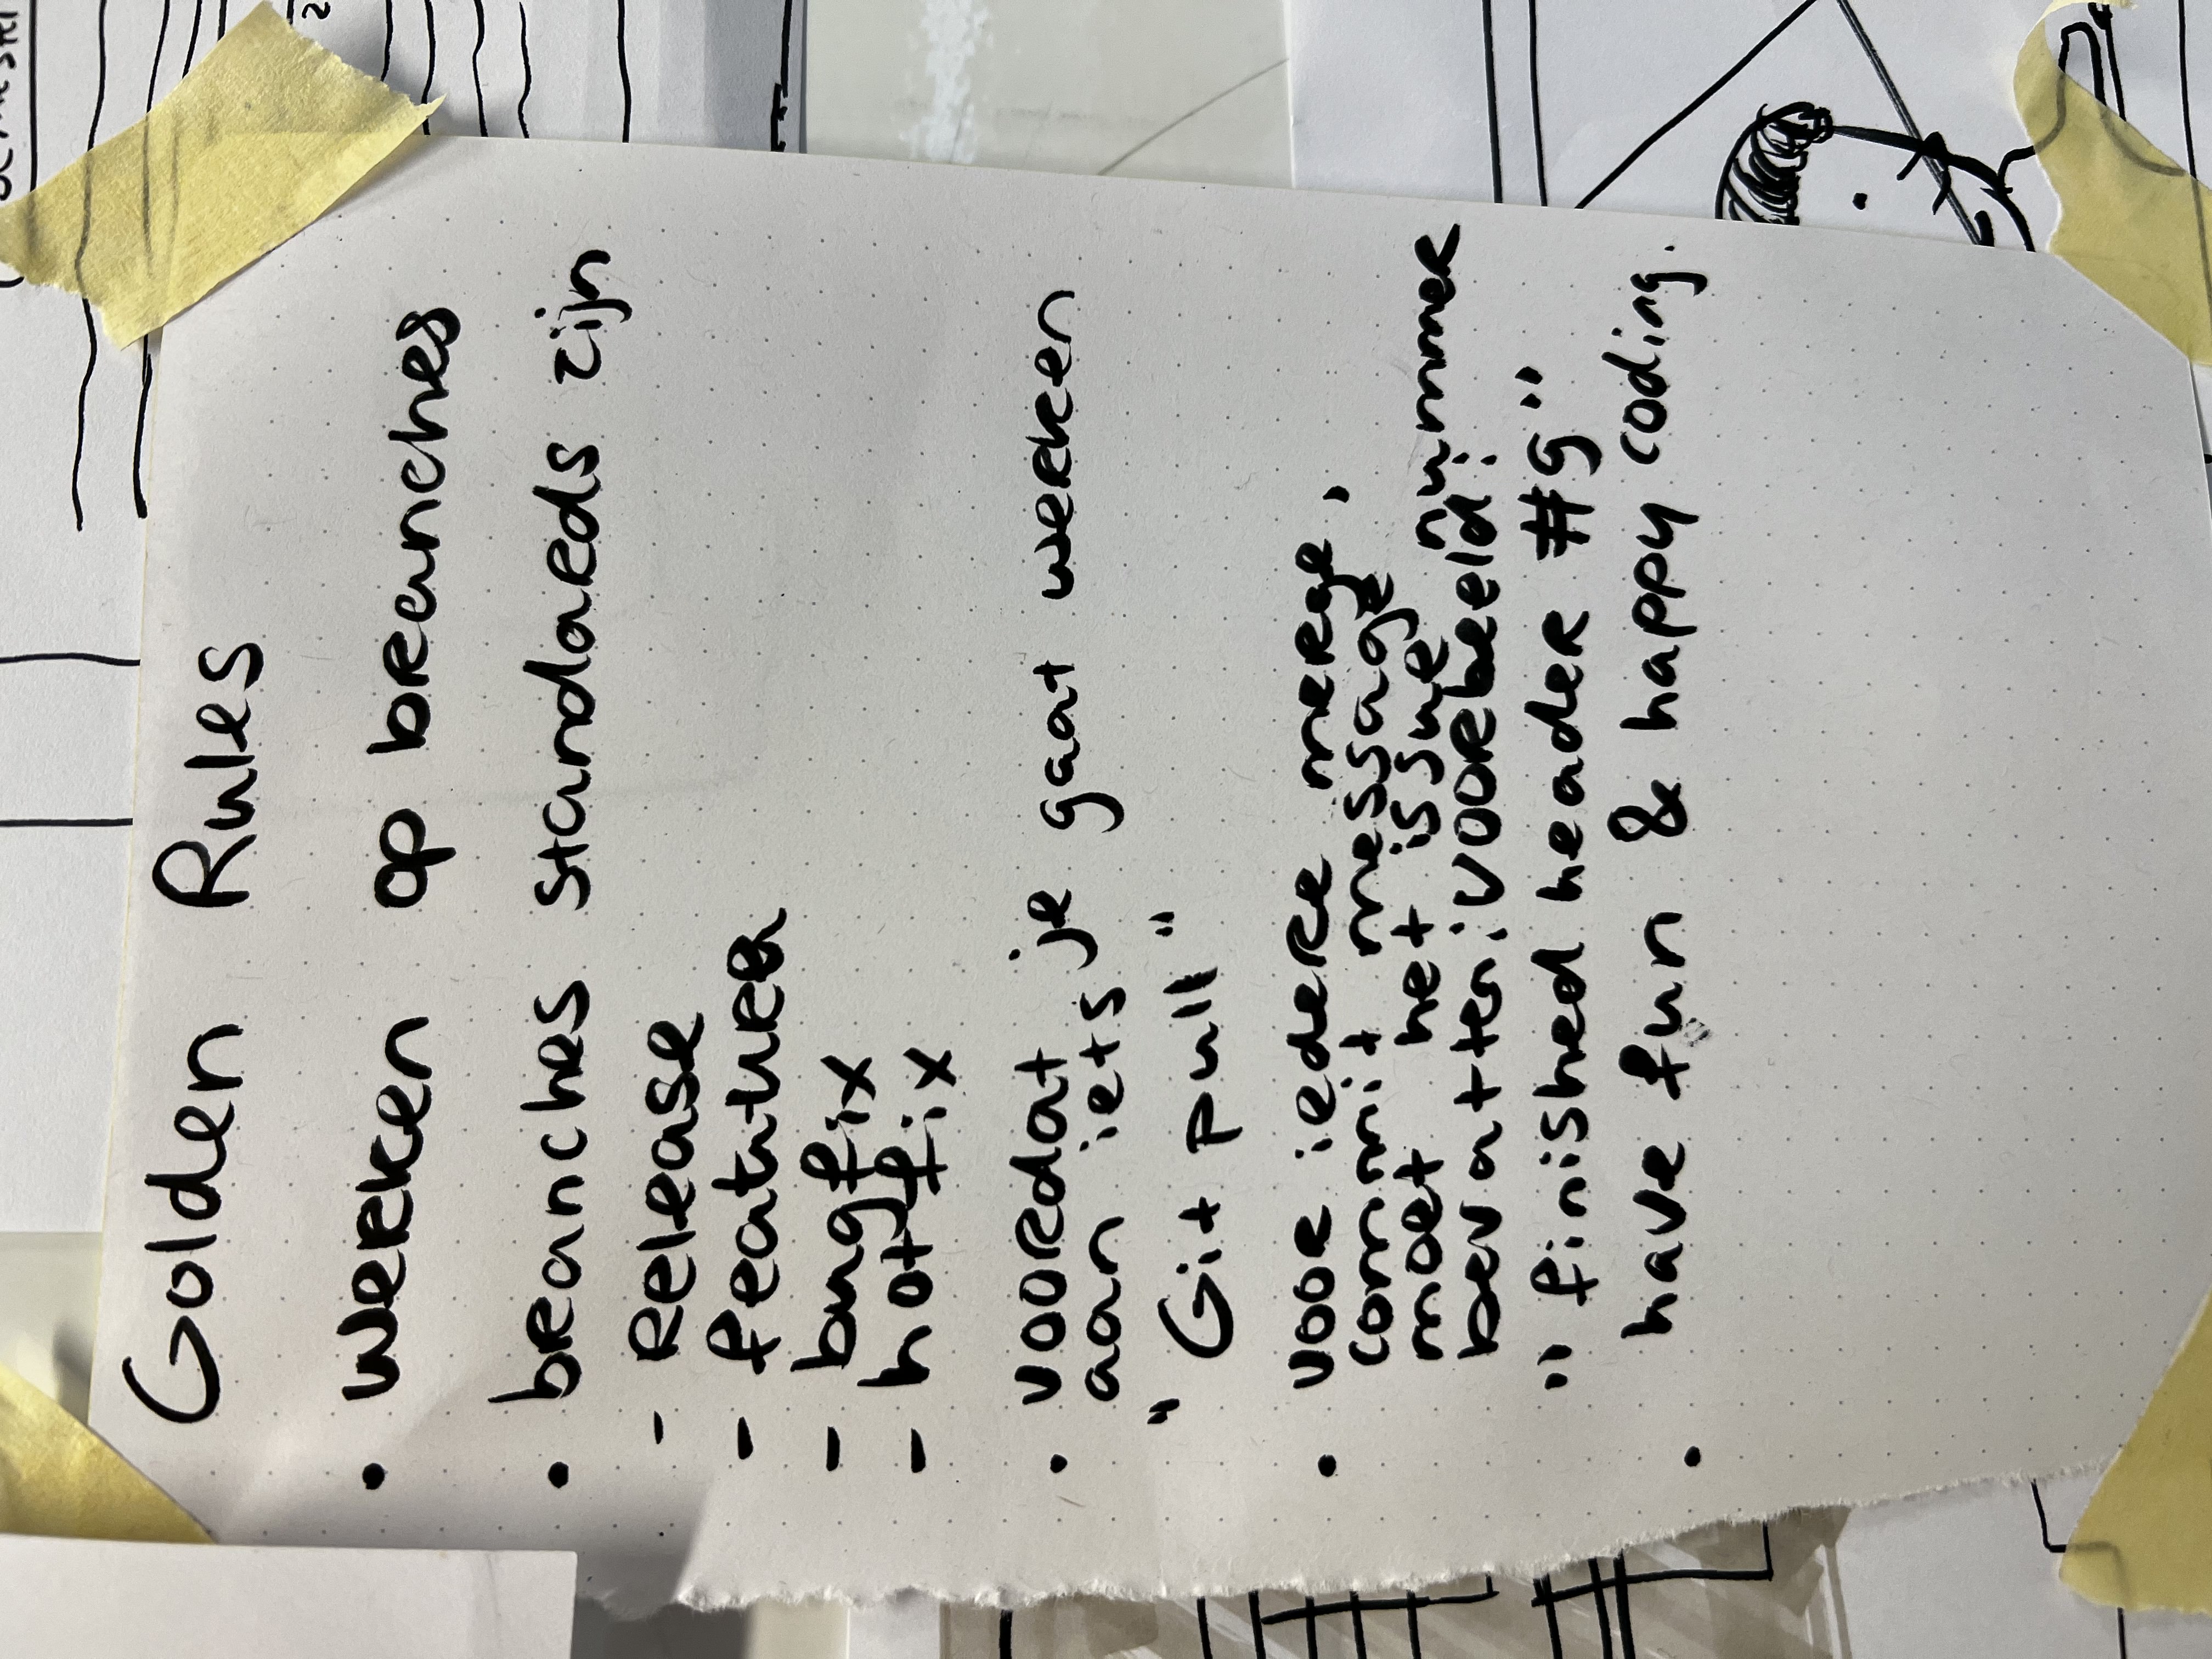 Golden Rules
• werken op branches
• branches standaards zijn
- Release
- feature
- bugfix
- hotfix
• voordat je gaat werken
aan iets
"Git pull"
• voor iedere merge,
commit message
moet het issue nummer
bevatten; voorbeeld:
"finished header #9"
• have fun & happy coding.